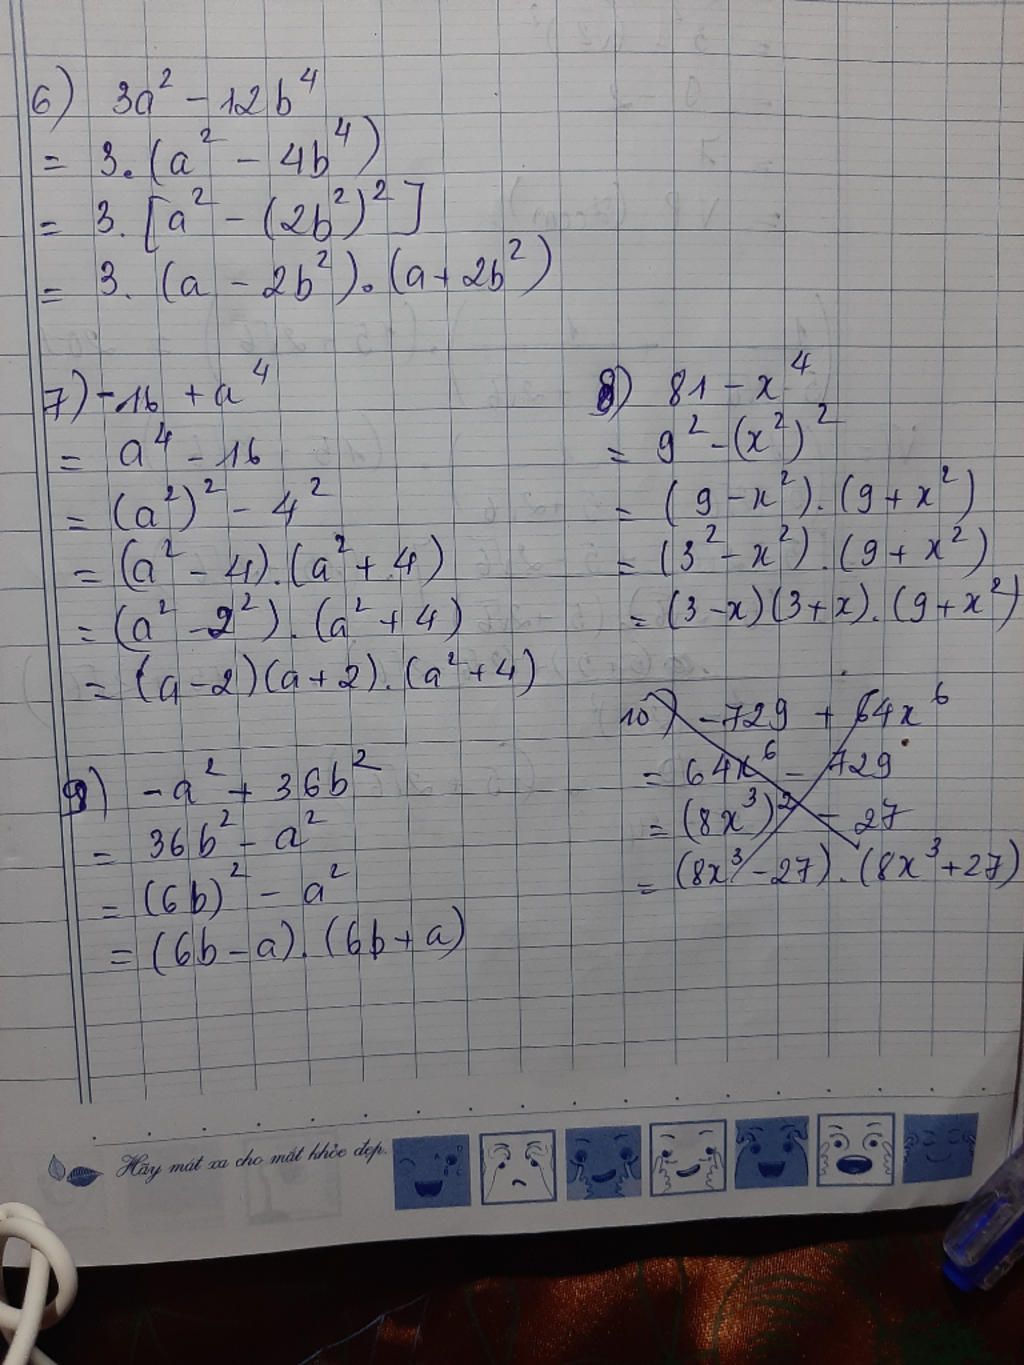 6) 3a² - 12b⁴
= 3.(a² - 4b⁴)
= 3.[a² - (2b²)²]
= 3. (a - 2b²).(a + 2b²)
7) -16 + a⁴
= a⁴ - 16
= (a²)² - 4²
= (a² - 4).(a² + 4)
= (a² - 2²).(a² + 4)
= (a - 2)(a + 2).(a² + 4)
8) 81 - x⁴
= 9² - (x²)²
= (9 - x²).(9 + x²)
= (3² - x²).(9 + x²)
= (3 - x)(3 + x).(9 + x²)
9) -a² + 36b²
= 36b² - a²
= (6b)² - a²
= (6b - a).(6b + a)
10) -729 + 64x⁶
= 64x⁶ - 729
= (8x³)² - 27
= (8x³ - 27).(8x³ + 27)
Hãy mát xa cho mắt khỏe đẹp.